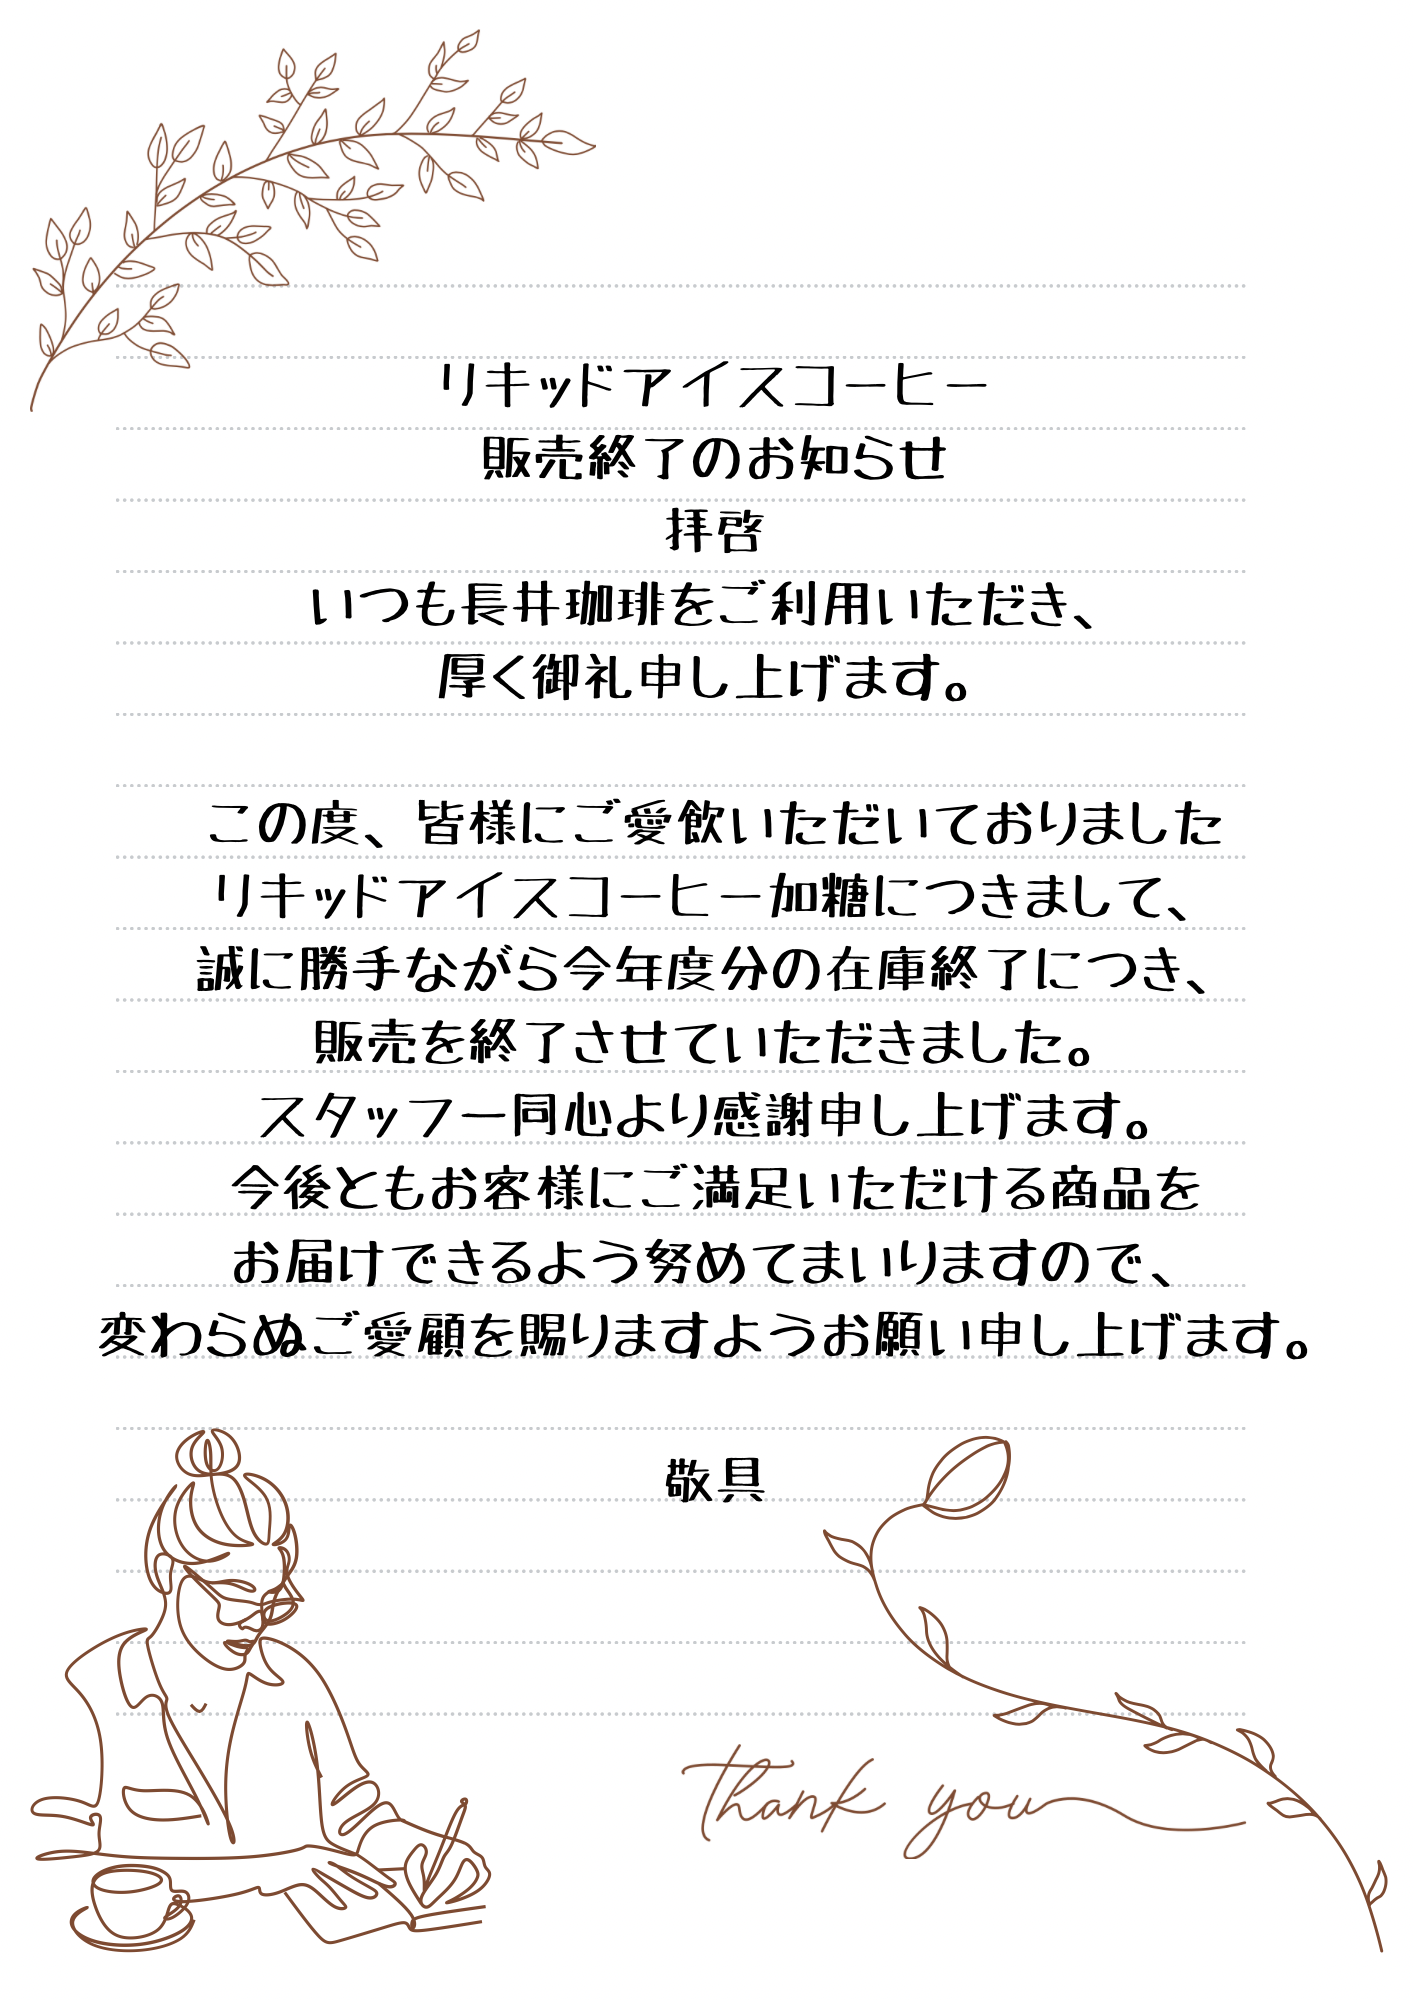 リキッドアイスコーヒー
販売終了のお知らせ
拝啓
いつも長井珈琲をご利用いただき、
厚く御礼申し上げます。
この度、皆様にご愛飲いただいておりました
リキッドアイスコーヒー加糖につきまして、
誠に勝手ながら今年度分の在庫終了につき、
販売を終了させていただきました。
スタッフ一同心より感謝申し上げます。
今後ともお客様にご満足いただける商品を
お届けできるよう努めてまいりますので、
変わらぬご愛顧を賜りますようお願い申し上げます。
敬具
thank you